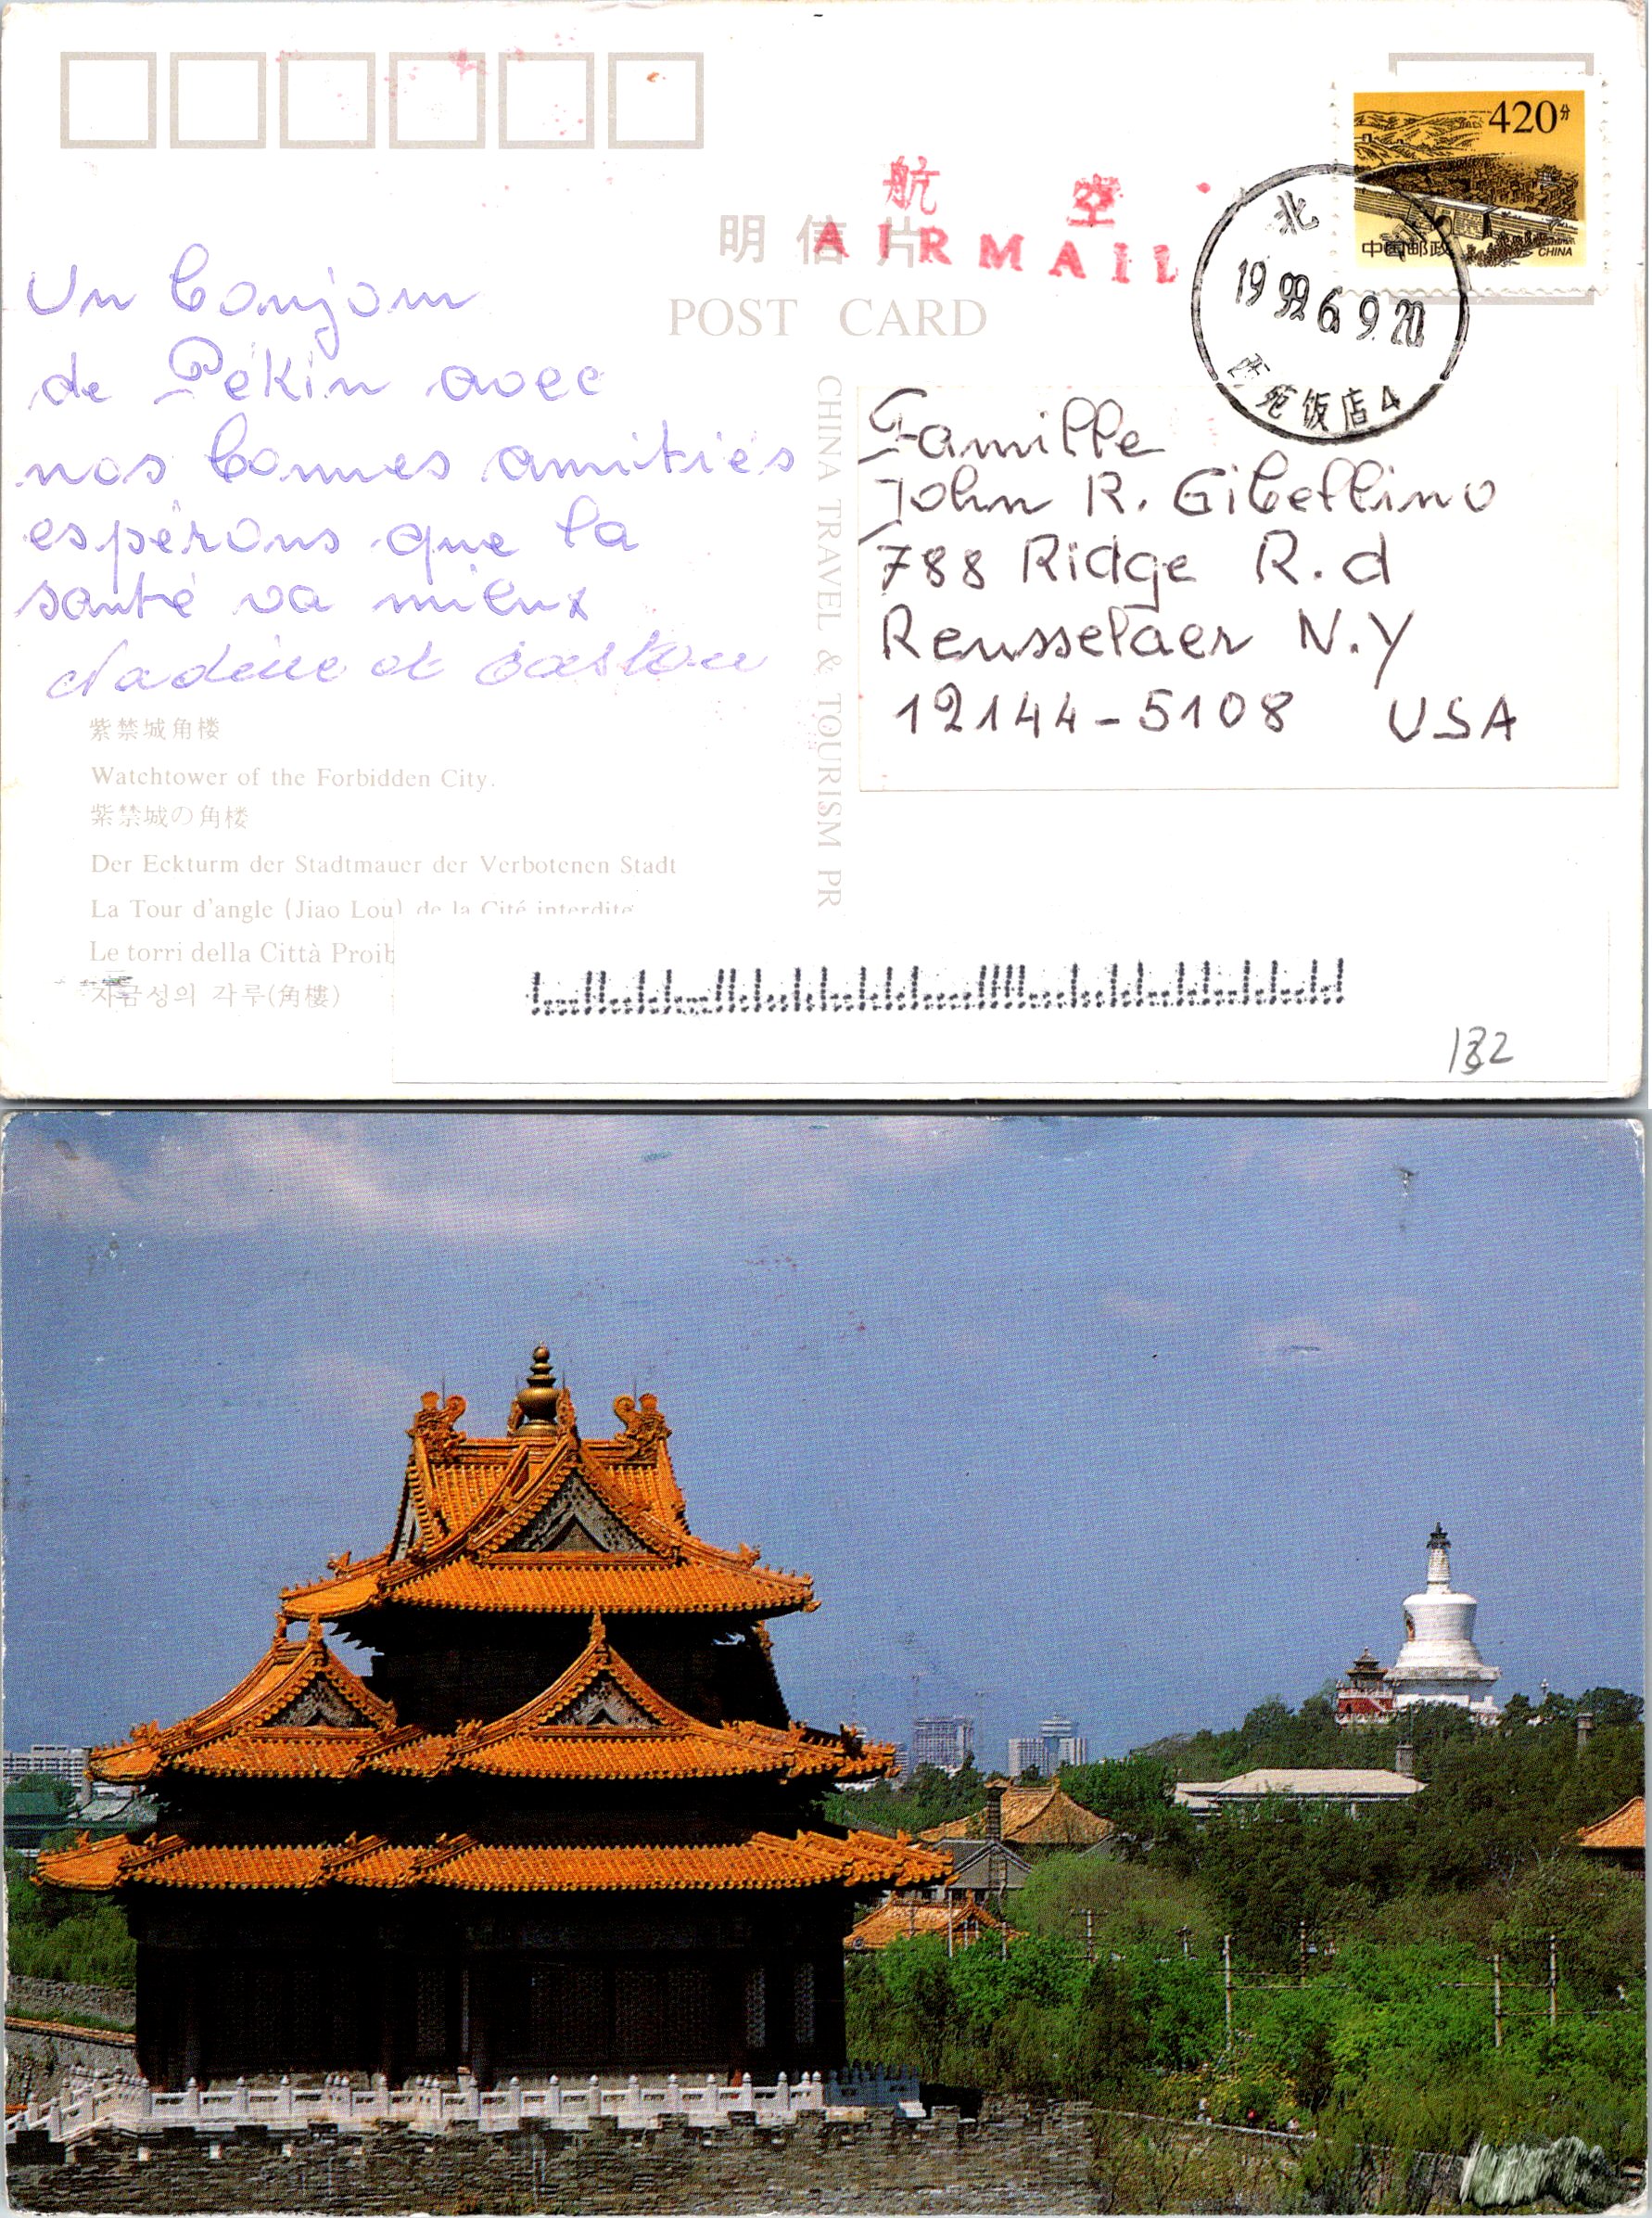 420分
中国邮政
CHINA
航空
AIRMAIL
明信片
POST CARD
北
1999.6.9.20
西苑饭店4
Un bonjour
de Pékin avec
nos bonnes amitiés
espérons que la
santé va mieux
Nadine et Gaston
CHINA TRAVEL & TOURISM PR
Famille
John R. Gibellino
788 Ridge R.d
Rensselaer N.Y
12144-5108 USA
紫禁城角楼
Watchtower of the Forbidden City.
紫禁城の角楼
Der Eckturm der Stadtmauer der Verbotenen Stadt
La Tour d'angle (Jiao Lou) de la Cité interdite
Le torri della Città Proib
자금성의 각루(角樓)
132